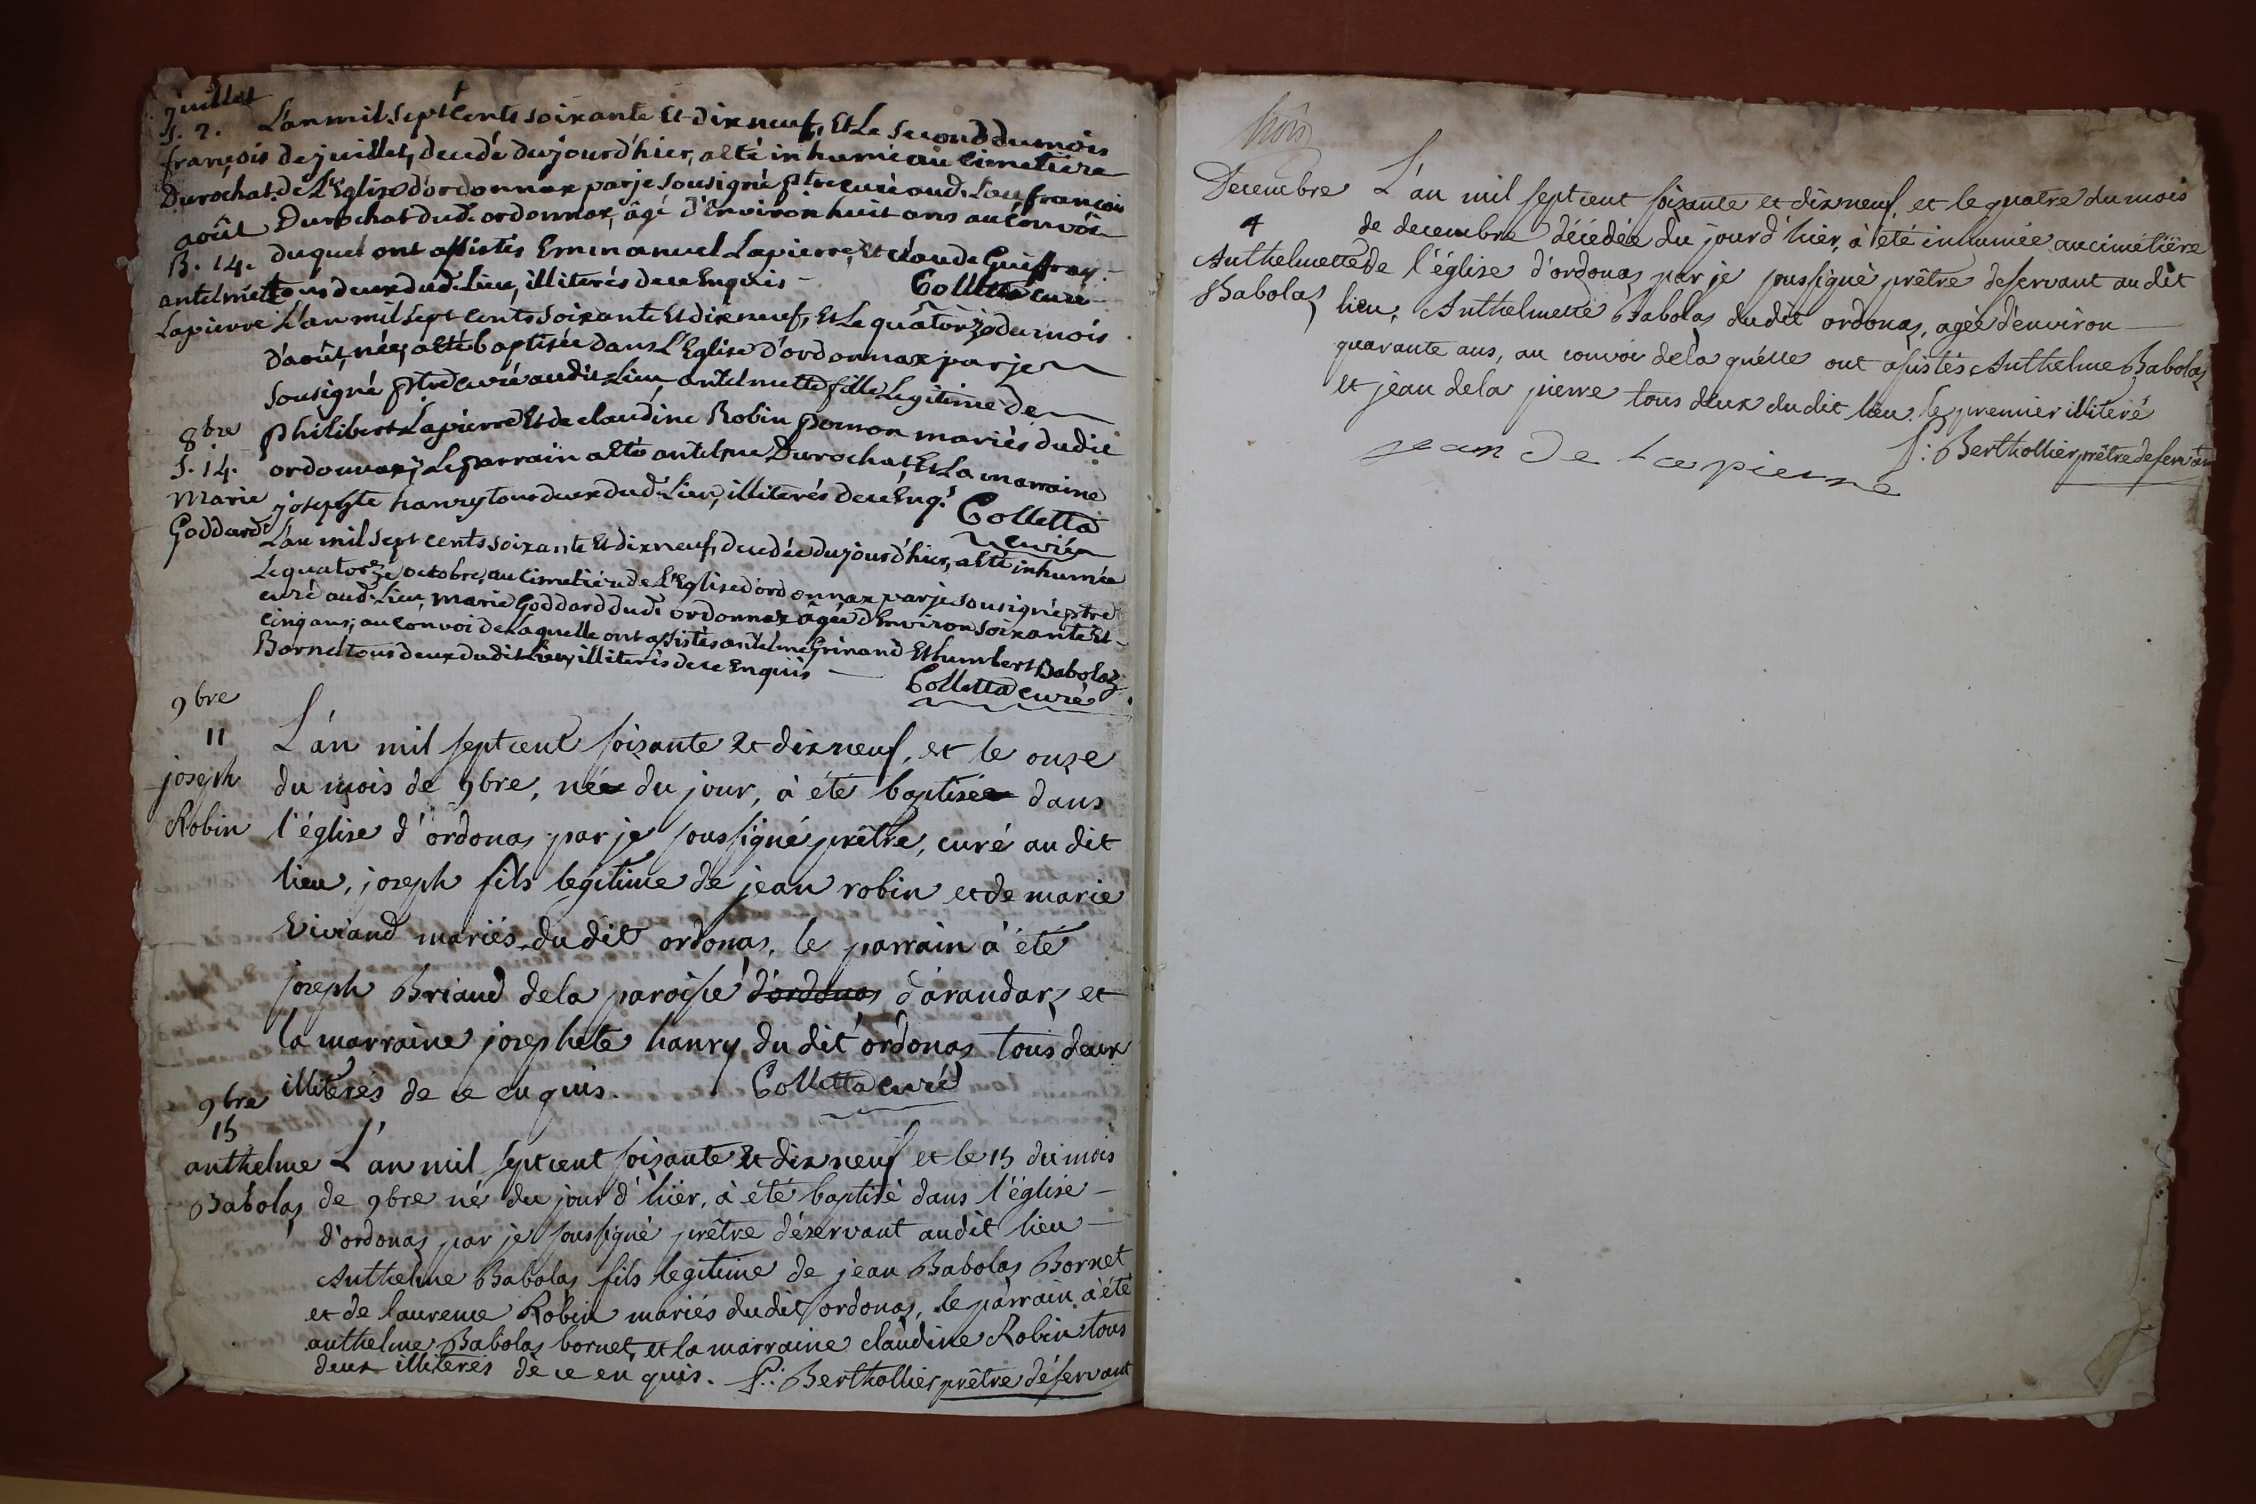 juillet
S. 2.
françois
Durochat
L'an mil sept Cents soixante Et dix neuf, Et Le second du mois
de juillet, decedé dujourd'hier, a été inhumé au Cimetiere
de L'Eglise d'ordonnax par je sousigné ptre curé aud. Lieu françois
Durochat dud. ordonnax, âgé d'Environ huit ans au Convoi
duquel ont assistés Emmanuel Lapierre, Et claude Guiffray
tous deux dud. Lieu, illiterés de ce Enquis -
Colletta curé
août
B. 14.
antelmette
Lapierre
L'an mil sept Cents soixante Et dix neuf, Et Le quâtorze du mois
d'août, née, a été baptisée dans L'Eglise d'ordonnax par je
sousigné ptre curé audit Lieu, antelmette fille Legitime de
philibert Lapierre Et de claudine Robin pomon mariés dudit
ordonnax; Le parrain a été antelme Durochat, Et La marraine
josephte hanry tous deux dud. Lieu, illiterés de ce Enq.s
Colletta
curé
8bre
S. 14.
Marie
Goddard
L'an mil sept cents soixante Et dix neuf, decedée dujourd'hier, a été inhumée
Le quatorze octobre, au Cimetiere de L'Eglise d'ordonnax par je sousigné ptre
curé aud. Lieu, marie Goddard dud. ordonnax âgée d'Environ soixante Et
Cinq ans; au Convoi de Laquelle ont assistés antelme Grinand Et humbert Babolaz
Bornet tous deux dudit Lieu, illiterés de ce Enquis
Colletta curé
9bre
11
joseph
Robin
L'an mil sept cent soixante et dix neuf, et le onze
du mois de 9bre, né du jour, à été baptisé dans
l'église d'ordonaz par je soussigné prêtre, curé au dit
lieu, joseph fils legitime de jean robin et de marie
Viviand mariés dudit ordonaz, le parrain à été
joseph Briand dela paroisse d'ordonas d'arandaz et
la marraine josephete hanry du dit ordonaz tous deux
illiterés de ce enquis.
Colletta curé
9bre
15
anthelme
Babolaz
L'an mil sept cent soixante et dix neuf et le 15 du mois
de 9bre né du jour d'hier, à été baptisé dans l'église
d'ordonaz par je soussigné prêtre déservant audit lieu
Anthelme Babolaz fils legitime de jean Babolaz Bornet
et de laurence Robin mariés dudit ordonaz, le parrain à été
anthelme Babolaz bornet, et la marraine claudine Robin tous
deux illiterés de ce en quis. f: Berthollier prêtre déservant
trois
Decembre
4
Anthelmette
Babolaz
L'an mil sept cent soixante et dix neuf, et le quatre du mois
de decembre décédée du jour d'hier, à été inhumée au cimetière
de l'église d'ordonaz par je soussigné prêtre deservant au dit
lieu, Anthelmette Babolaz dudit ordonaz, agée d'environ
quarante ans, au convoi dela quelle ont asistés Anthelme Babolaz
et jean dela pierre tous deux dudit lieu. le premier illiteré
jean De La pierre
f: Berthollier prêtre deservant